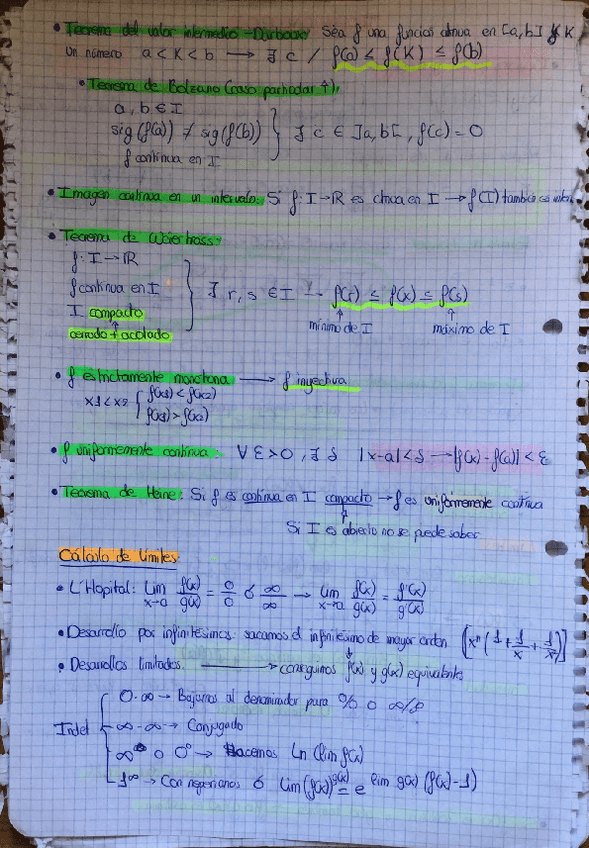 • Teorema del valor intermedio - Darboux: Sea f una función ctnua en [a,b] y K
un número a < K < b → ∃ c / f(a) ≤ f(K) ≤ f(b)
• Teorema de Bolzano (caso particular ↑):
a, b ∈ I
sig(f(a)) ≠ sig(f(b)) } ∃ c ∈ ]a,b[, f(c) = 0
f continua en I
• Imagen continua en un intervalo: Si f: I → ℝ es ctnua en I → f(I) también es interv.
• Teorema de Weiertrass:
f: I → ℝ
f continua en I } ∃ r, s ∈ I → f(r) ≤ f(x) ≤ f(s)
I compacto
mínimo de I máximo de I
cerrado + acotado
• f estrictamente monótona → f inyectiva
x1 < x2 { f(x1) < f(x2)
f(x1) > f(x2)
• f uniformemente continua: ∀ ε > 0, ∃ δ |x-a| < δ → |f(x) - f(a)| < ε
• Teorema de Heine: Si f es continua en I compacto → f es uniformemente continua
Si I es abierto no se puede saber
Cálculo de límites
• L'Hopital: lim x→a f(x)/g(x) = 0/0 ó ∞/∞ → lim x→a f(x)/g(x) = f'(x)/g'(x)
• Desarrollo por infinitésimos: sacamos el infinitésimo de mayor orden [xⁿ(1 + 1/x + 1/x²)]
• Desarrollos limitados. → conseguimos f(x) y g(x) equivalentes
0·∞ → Bajamos al denominador para 0/0 o ∞/∞
Indet { ∞-∞ → Conjugado
∞⁰ o 0⁰ → Hacemos Ln (lim f(x))
1^∞ → Con neperianos ó lim(f(x))^g(x) = e^lim g(x)(f(x)-1)